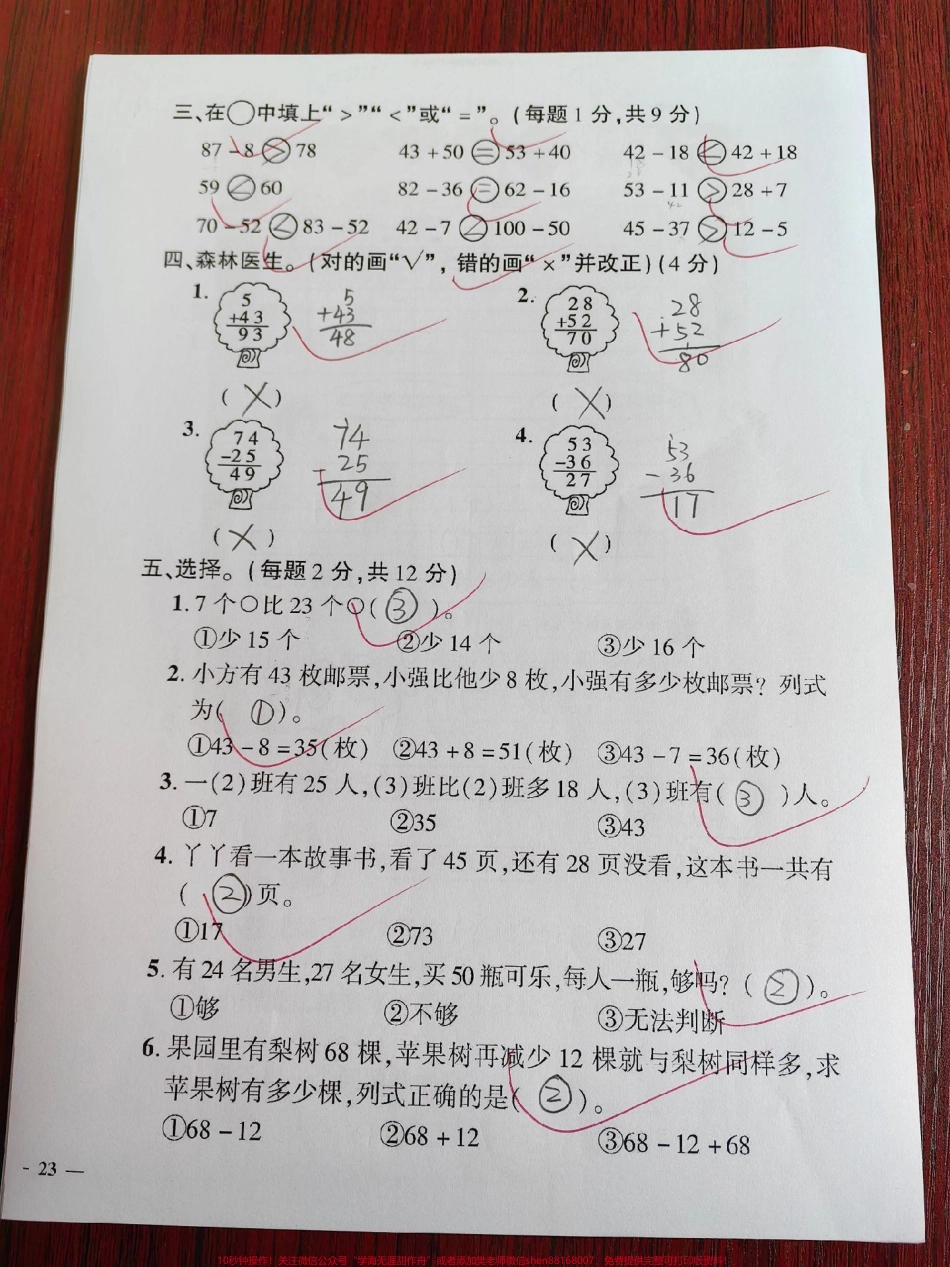 三、在○中填上“＞”“＜”或“＝”。(每题1分,共9分)
87－8＞78 43＋50＝53＋40 42－18＜42＋18
59＜60 82－36＝62－16 53－11＞28＋7
70－52＜83－52 42－7＜100－50 45－37＞12－5
四、森林医生。(对的画“√”，错的画“×”并改正)(4分)
1. 2.
5 5 28 28
+43 +43 +52 +52
93 48 70 80
(×) (×)
3. 4.
74 74 53 53
-25 -25 -36 -36
49 49 27 17
(×) (×)
五、选择。(每题2分,共12分)
1.7个○比23个○(③)。
①少15个 ②少14个 ③少16个
2.小方有43枚邮票,小强比他少8枚,小强有多少枚邮票?列式
为(①)。
①43－8＝35(枚) ②43＋8＝51(枚) ③43－7＝36(枚)
3.一(2)班有25人,(3)班比(2)班多18人,(3)班有(③)人。
①7 ②35 ③43
4.丫丫看一本故事书,看了45页,还有28页没看,这本书一共有
(②)页。
①17 ②73 ③27
5.有24名男生,27名女生,买50瓶可乐,每人一瓶,够吗?(②)。
①够 ②不够 ③无法判断
6.果园里有梨树68棵,苹果树再减少12棵就与梨树同样多,求
苹果树有多少棵,列式正确的是(②)。
①68－12 ②68＋12 ③68－12＋68
- 23 —
10秒钟操作！关注微信公众号“学海无涯甜作舟”或者添加奕老师微信shen88168007 免费提供完整可打印版资料